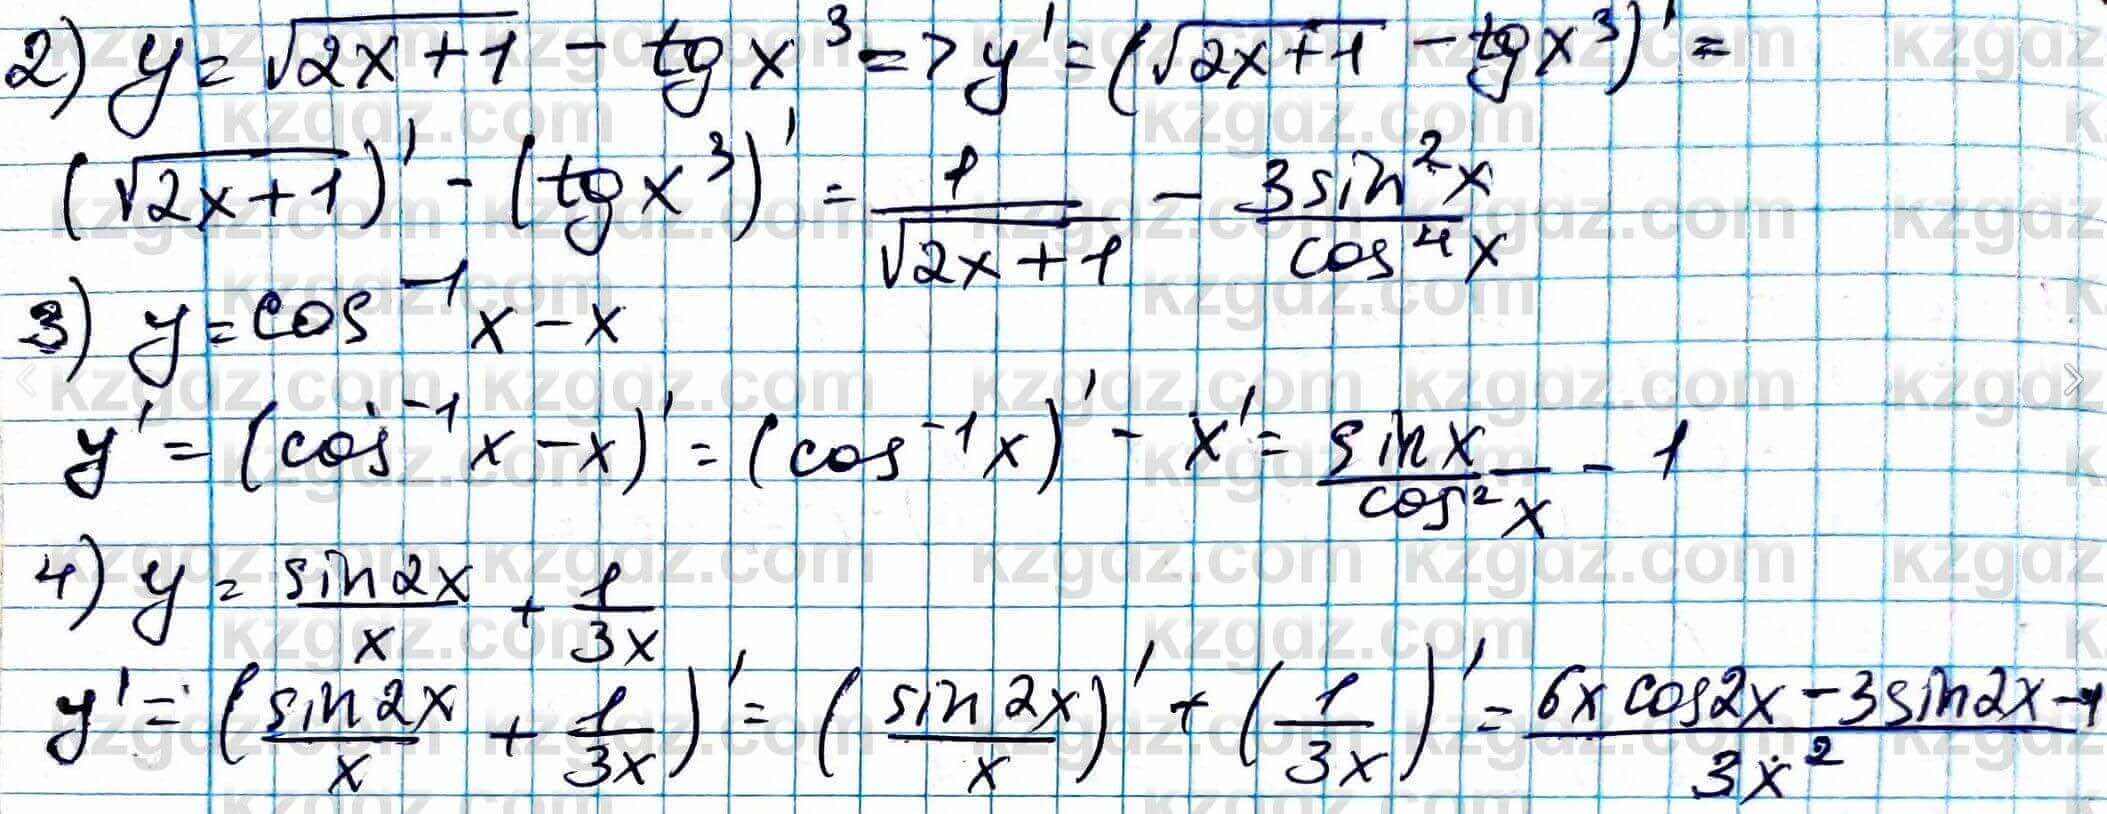 2) y = √(2x+1) - tg x³ => y' = (√(2x+1) - tg x³)' =
(√(2x+1))' - (tg x³)' = 1/√(2x+1) - 3sin²x/cos⁴x
3) y = cos⁻¹x - x
y' = (cos⁻¹x - x)' = (cos⁻¹x)' - x' = sinx/cos²x - 1
4) y = sin2x/x + 1/3x
y' = (sin2x/x + 1/3x)' = (sin2x/x)' + (1/3x)' = (6x cos2x - 3sin2x - 1)/3x²
kzgdz.com